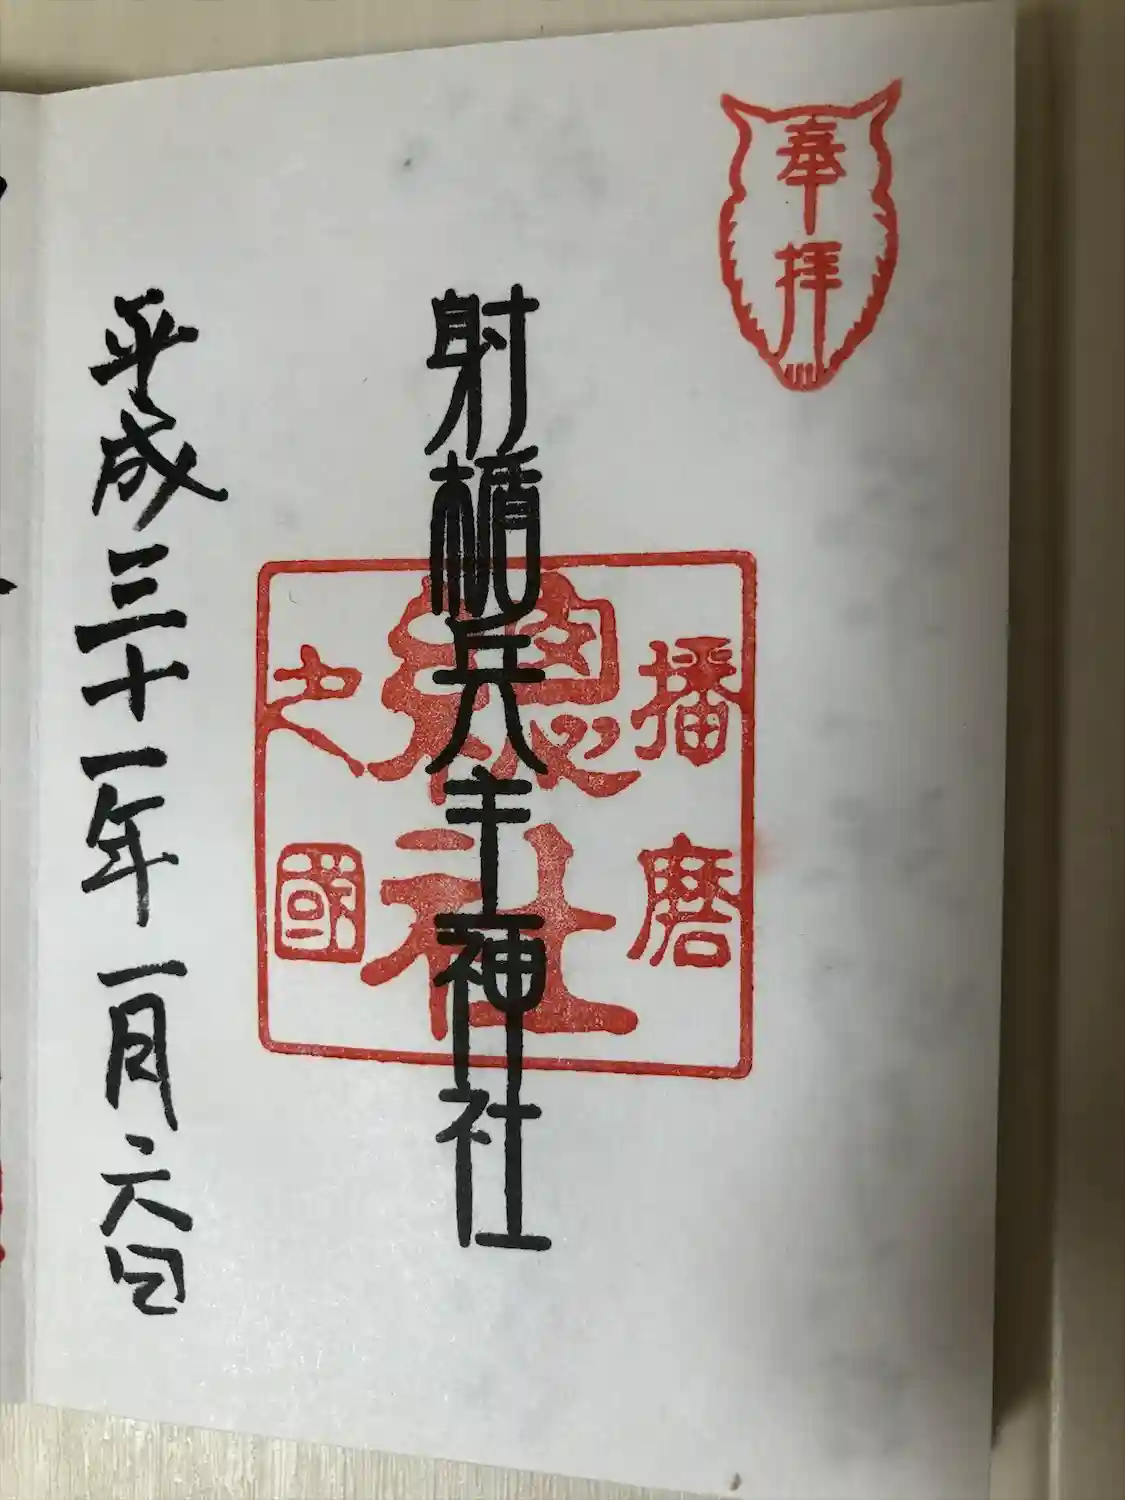 奉拝
射楯兵主神社
播磨
之國
總社
平成三十一年一月六日